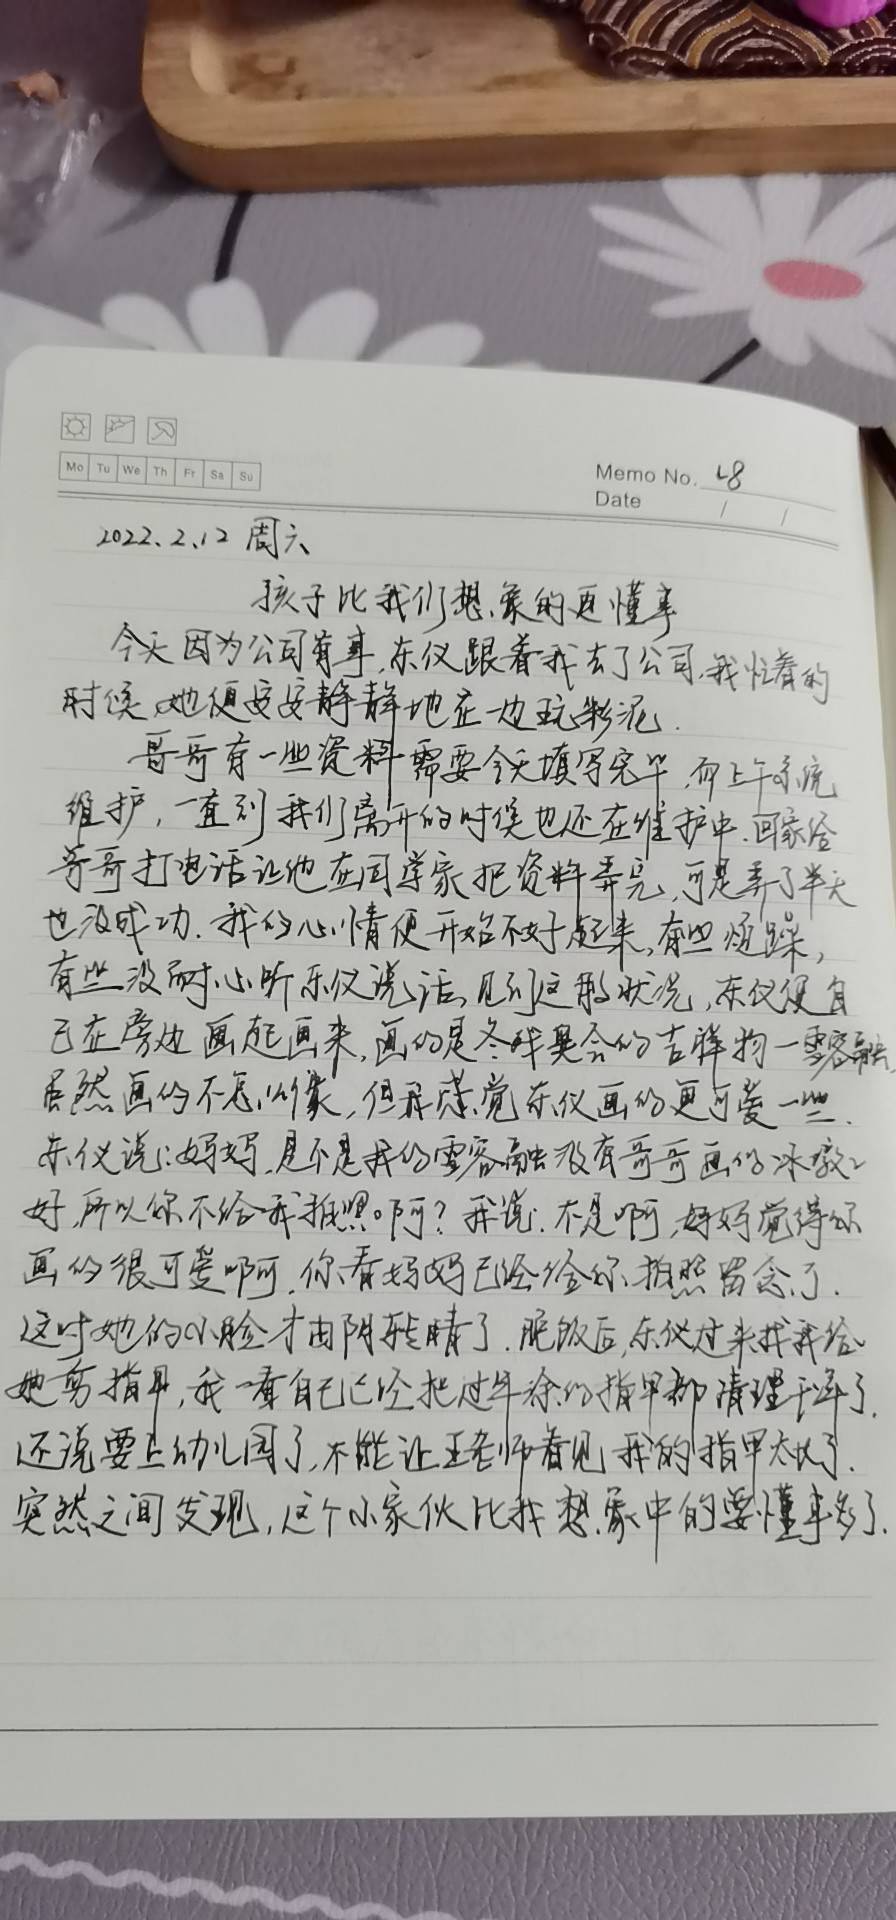 Mo Tu We Th Fr Sa Su
Memo No. 48
Date / /
2022.2.12 周六
孩子比我们想象的更懂事
今天因为公司有事,东仪跟着我去了公司,我忙着的
时候,她便安安静静地在一边玩彩泥.
哥哥有一些资料需要今天填写完毕,而上午系统
维护,一直到我们离开的时候也还在维护中.回家给
哥哥打电话让他在同学家把资料弄完,可是弄了半天
也没成功.我的心情便开始不好起来,有些烦躁,
有些没耐心听东仪说话,见到这般状况,东仪便自
己在旁边画起画来,画的是冬残奥会的吉祥物一雪容融,
虽然画的不怎么像,但我感觉东仪画的更可爱一些.
东仪说:妈妈,是不是我的雪容融没有哥哥画的冰墩墩
好,所以你不给我拍照啊?我说:不是啊,妈妈觉得你
画的很可爱啊,你看妈妈已经给你拍照留念了.
这时她的小脸才由阴转晴了.晚饭后,东仪过来找我给
她剪指甲,我一看自己已经把过年涂的指甲都清理干净了,
还说要上幼儿园了,不能让王老师看见我的指甲太长了.
突然之间发现,这个小家伙比我想象中的要懂事多了.